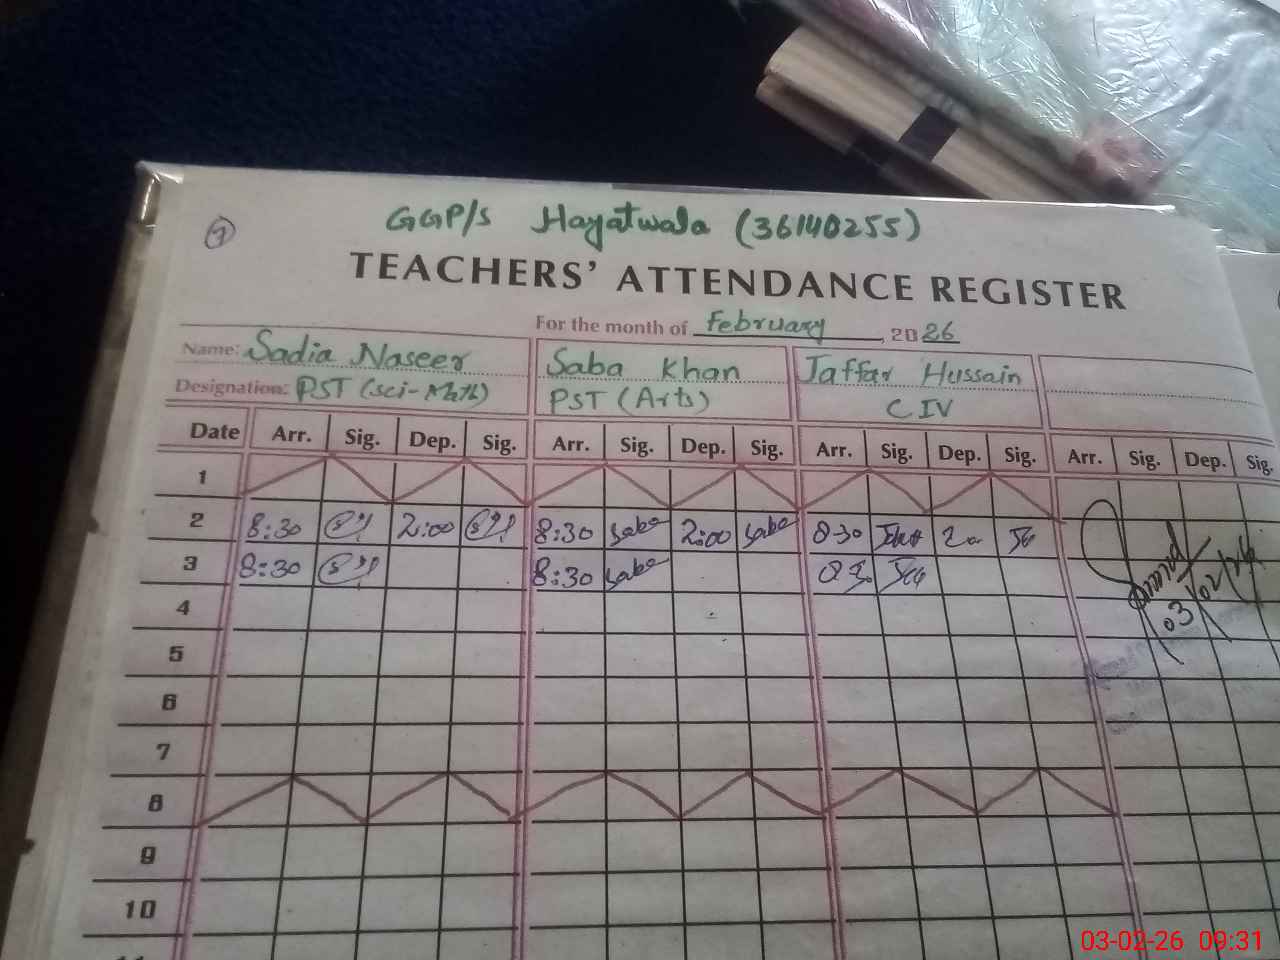 1
GGP/s Hayatwala (36140255)
TEACHERS' ATTENDANCE REGISTER
For the month of February, 2026
Name: Sadia Naseer Saba Khan Jaffar Hussain
Designation: PST (sci-Math) PST (Arts) CIV
Date Arr. Sig. Dep. Sig. Arr. Sig. Dep. Sig. Arr. Sig. Dep. Sig. Arr. Sig. Dep. Sig.
1
2 8:30 2:00 8:30 saba 2:00 saba 830
3 8:30 8:30 saba
4
5
6
7
8
9
10
03/02/26
03-02-26 09:31